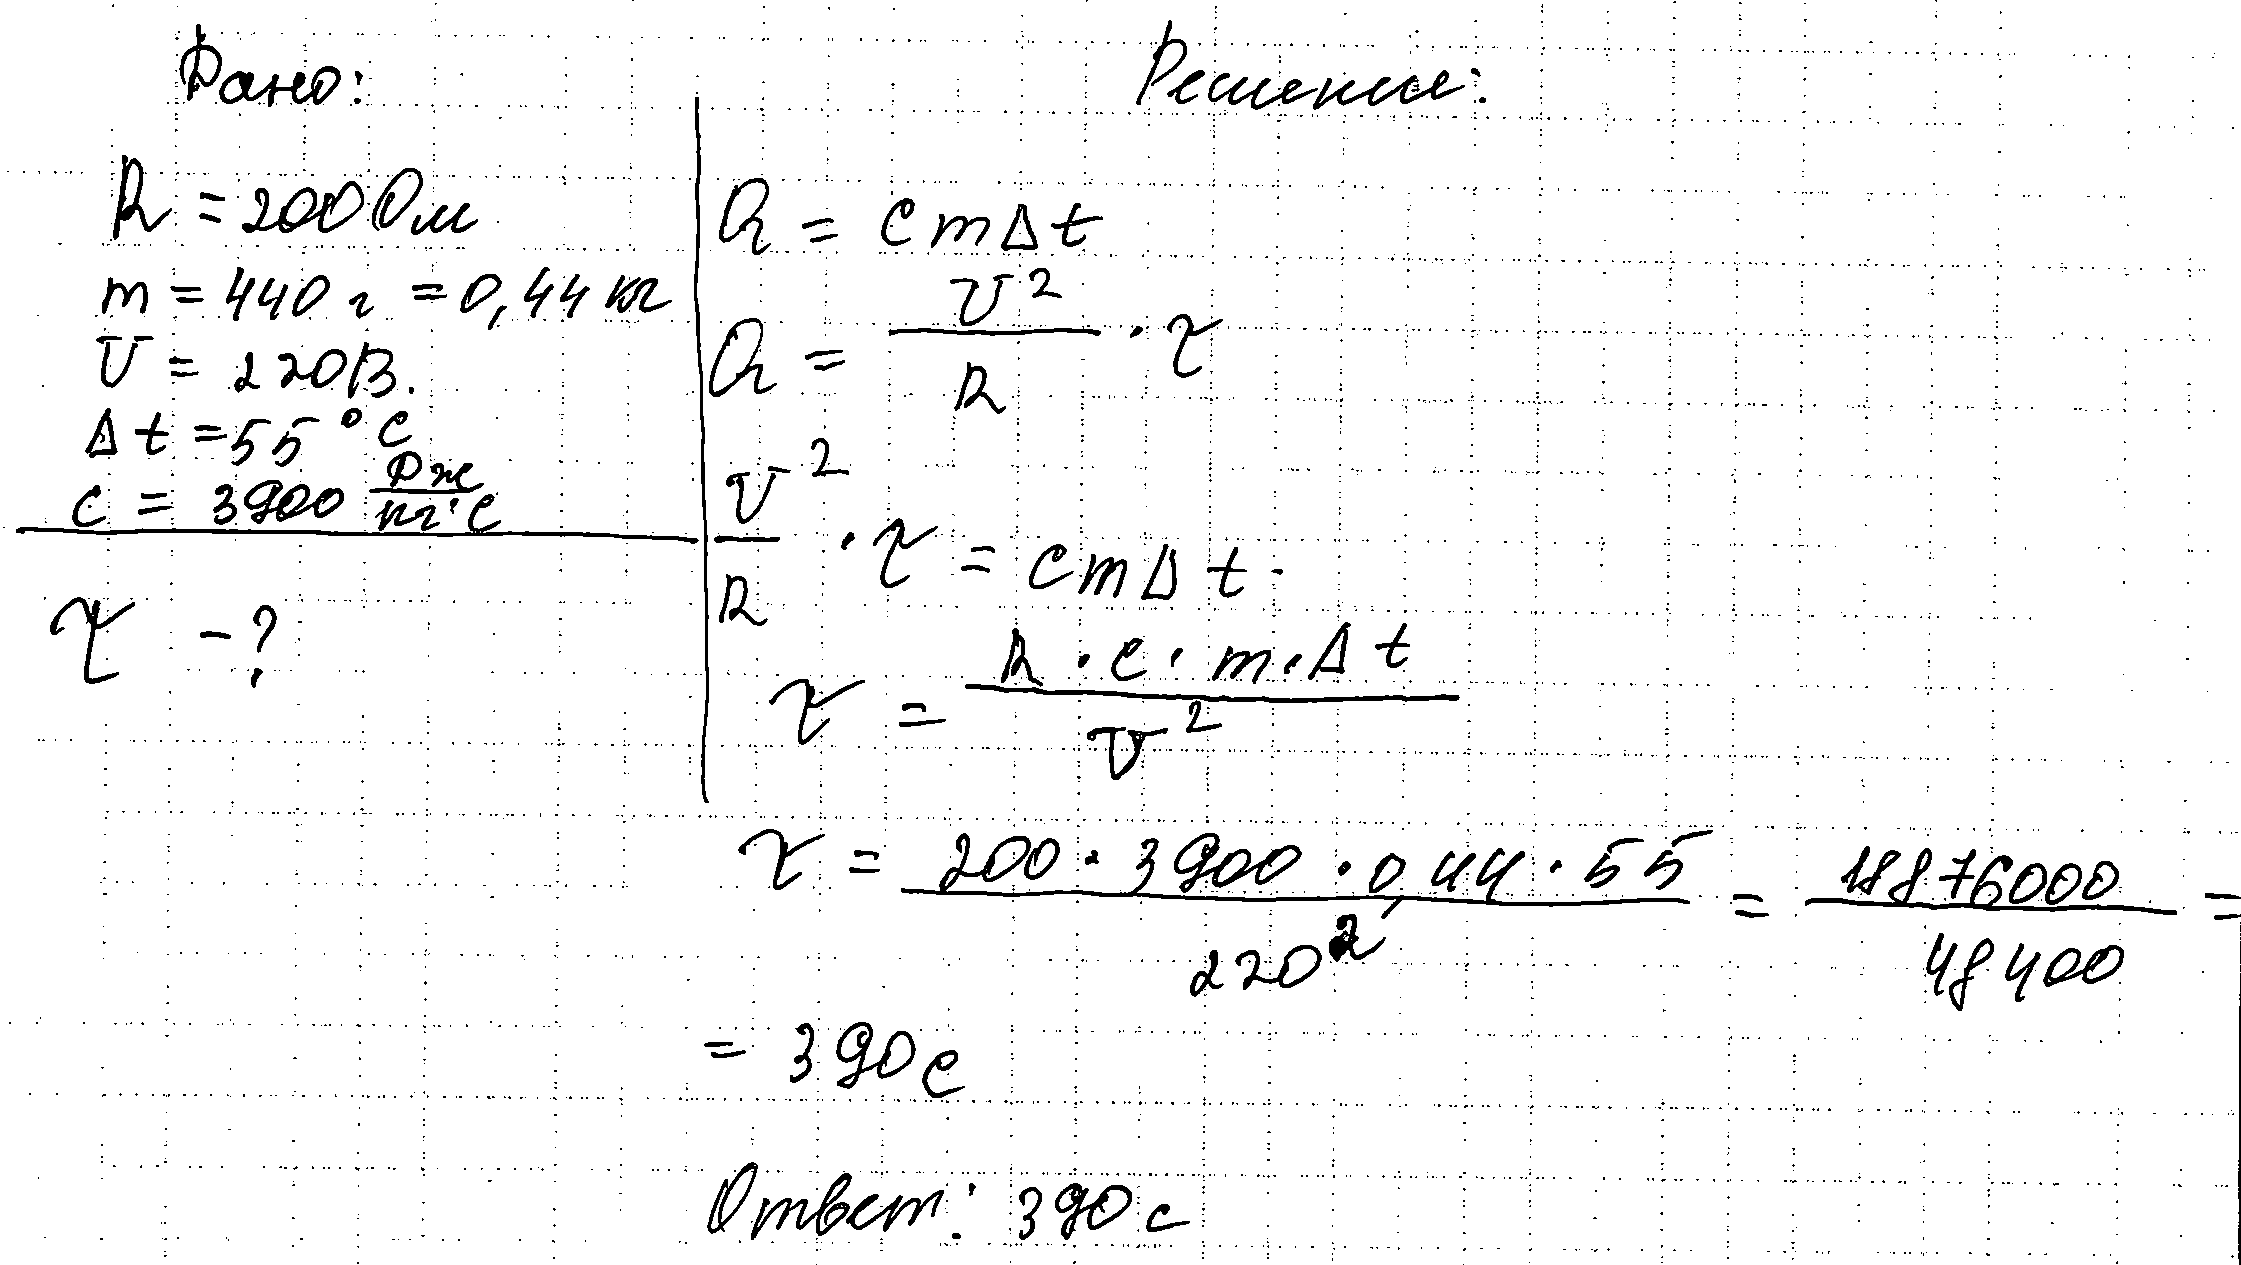 Дано:
R = 200 Ом
m = 440 г = 0,44 кг
U = 220В.
Δt = 55°С
c = 3900 Дж/кг·С
τ - ?
Решение:
Q = cmΔt
Q = U²/R · τ
U²/R · τ = cmΔt.
τ = R·c·m·Δt/U²
τ = 200·3900·0,44·55/220² = 18876000/48400 =
= 390с
Ответ: 390с